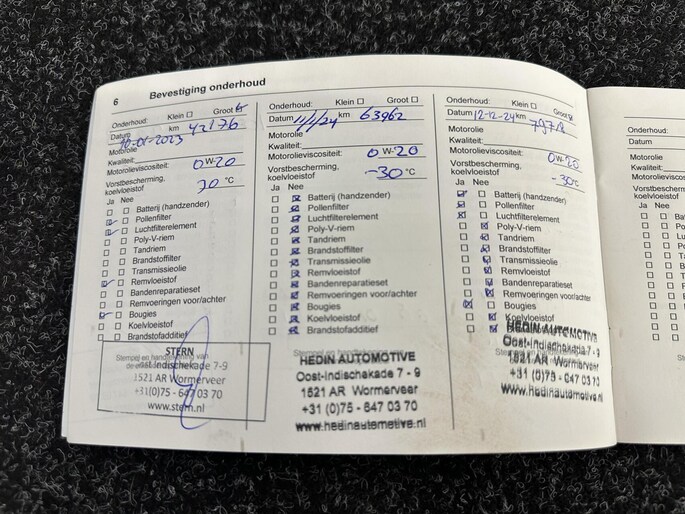 6 Bevestiging onderhoud
Onderhoud: Klein Groot
Datum 10-01-2023 km 42176
Motorolie
Kwaliteit:
Motorolieviscositeit: 0W-20
Vorstbescherming,
koelvloeistof 20 °C
Ja Nee
Batterij (handzender)
Pollenfilter
Luchtfilterelement
Poly-V-riem
Tandriem
Brandstoffilter
Transmissieolie
Remvloeistof
Bandenreparatieset
Remvoeringen voor/achter
Bougies
Koelvloeistof
Brandstofadditief
Stempel en handtekening van
STERN
Oost-Indischekade 7-9
1521 AR Wormerveer
+31(0)75 - 647 03 70
www.stern.nl
Onderhoud: Klein Groot
Datum 11/1/24 km 63962
Motorolie
Kwaliteit:
Motorolieviscositeit: 0W-20
Vorstbescherming,
koelvloeistof -30 °C
Ja Nee
Batterij (handzender)
Pollenfilter
Luchtfilterelement
Poly-V-riem
Tandriem
Brandstoffilter
Transmissieolie
Remvloeistof
Bandenreparatieset
Remvoeringen voor/achter
Bougies
Koelvloeistof
Brandstofadditief
HEDIN AUTOMOTIVE
Oost-Indischekade 7 - 9
1521 AR Wormerveer
+31 (0)75 - 647 03 70
www.hedinautomotive.nl
Onderhoud: Klein Groot
Datum 12-12-24 km
Motorolie
Kwaliteit:
Motorolieviscositeit: 0W-20
Vorstbescherming,
koelvloeistof -30 °C
Ja Nee
Batterij (handzender)
Pollenfilter
Luchtfilterelement
Poly-V-riem
Tandriem
Brandstoffilter
Transmissieolie
Remvloeistof
Bandenreparatieset
Remvoeringen voor/achter
Bougies
Koelvloeistof
HEDIN AUTOMOTIVE
Oost-Indischekade 7 - 9
1521 AR Wormerveer
+31 (0)75 - 647 03 70
www.hedinautomotive.nl
Onderhoud:
Datum
Motorolie
Kwaliteit:
Motorolieviscositeit:
Vorstbescherming,
koelvloeistof
Ja Nee